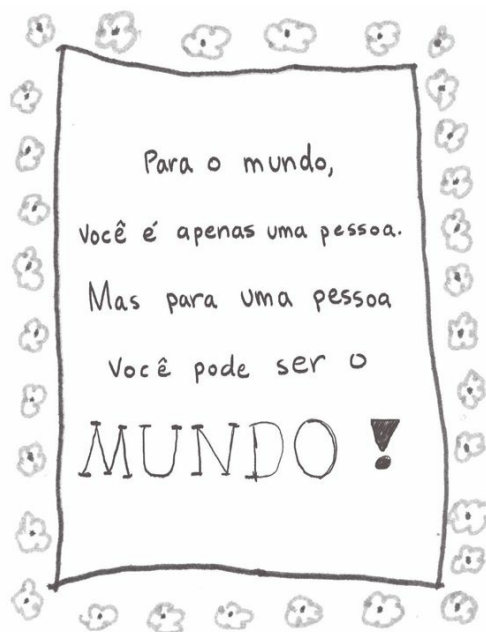 Para o mundo,
Você é apenas uma pessoa.
Mas para uma pessoa
Você pode ser o
MUNDO!